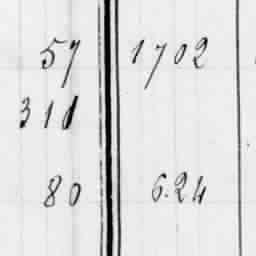 57 1702
311
80 6.24